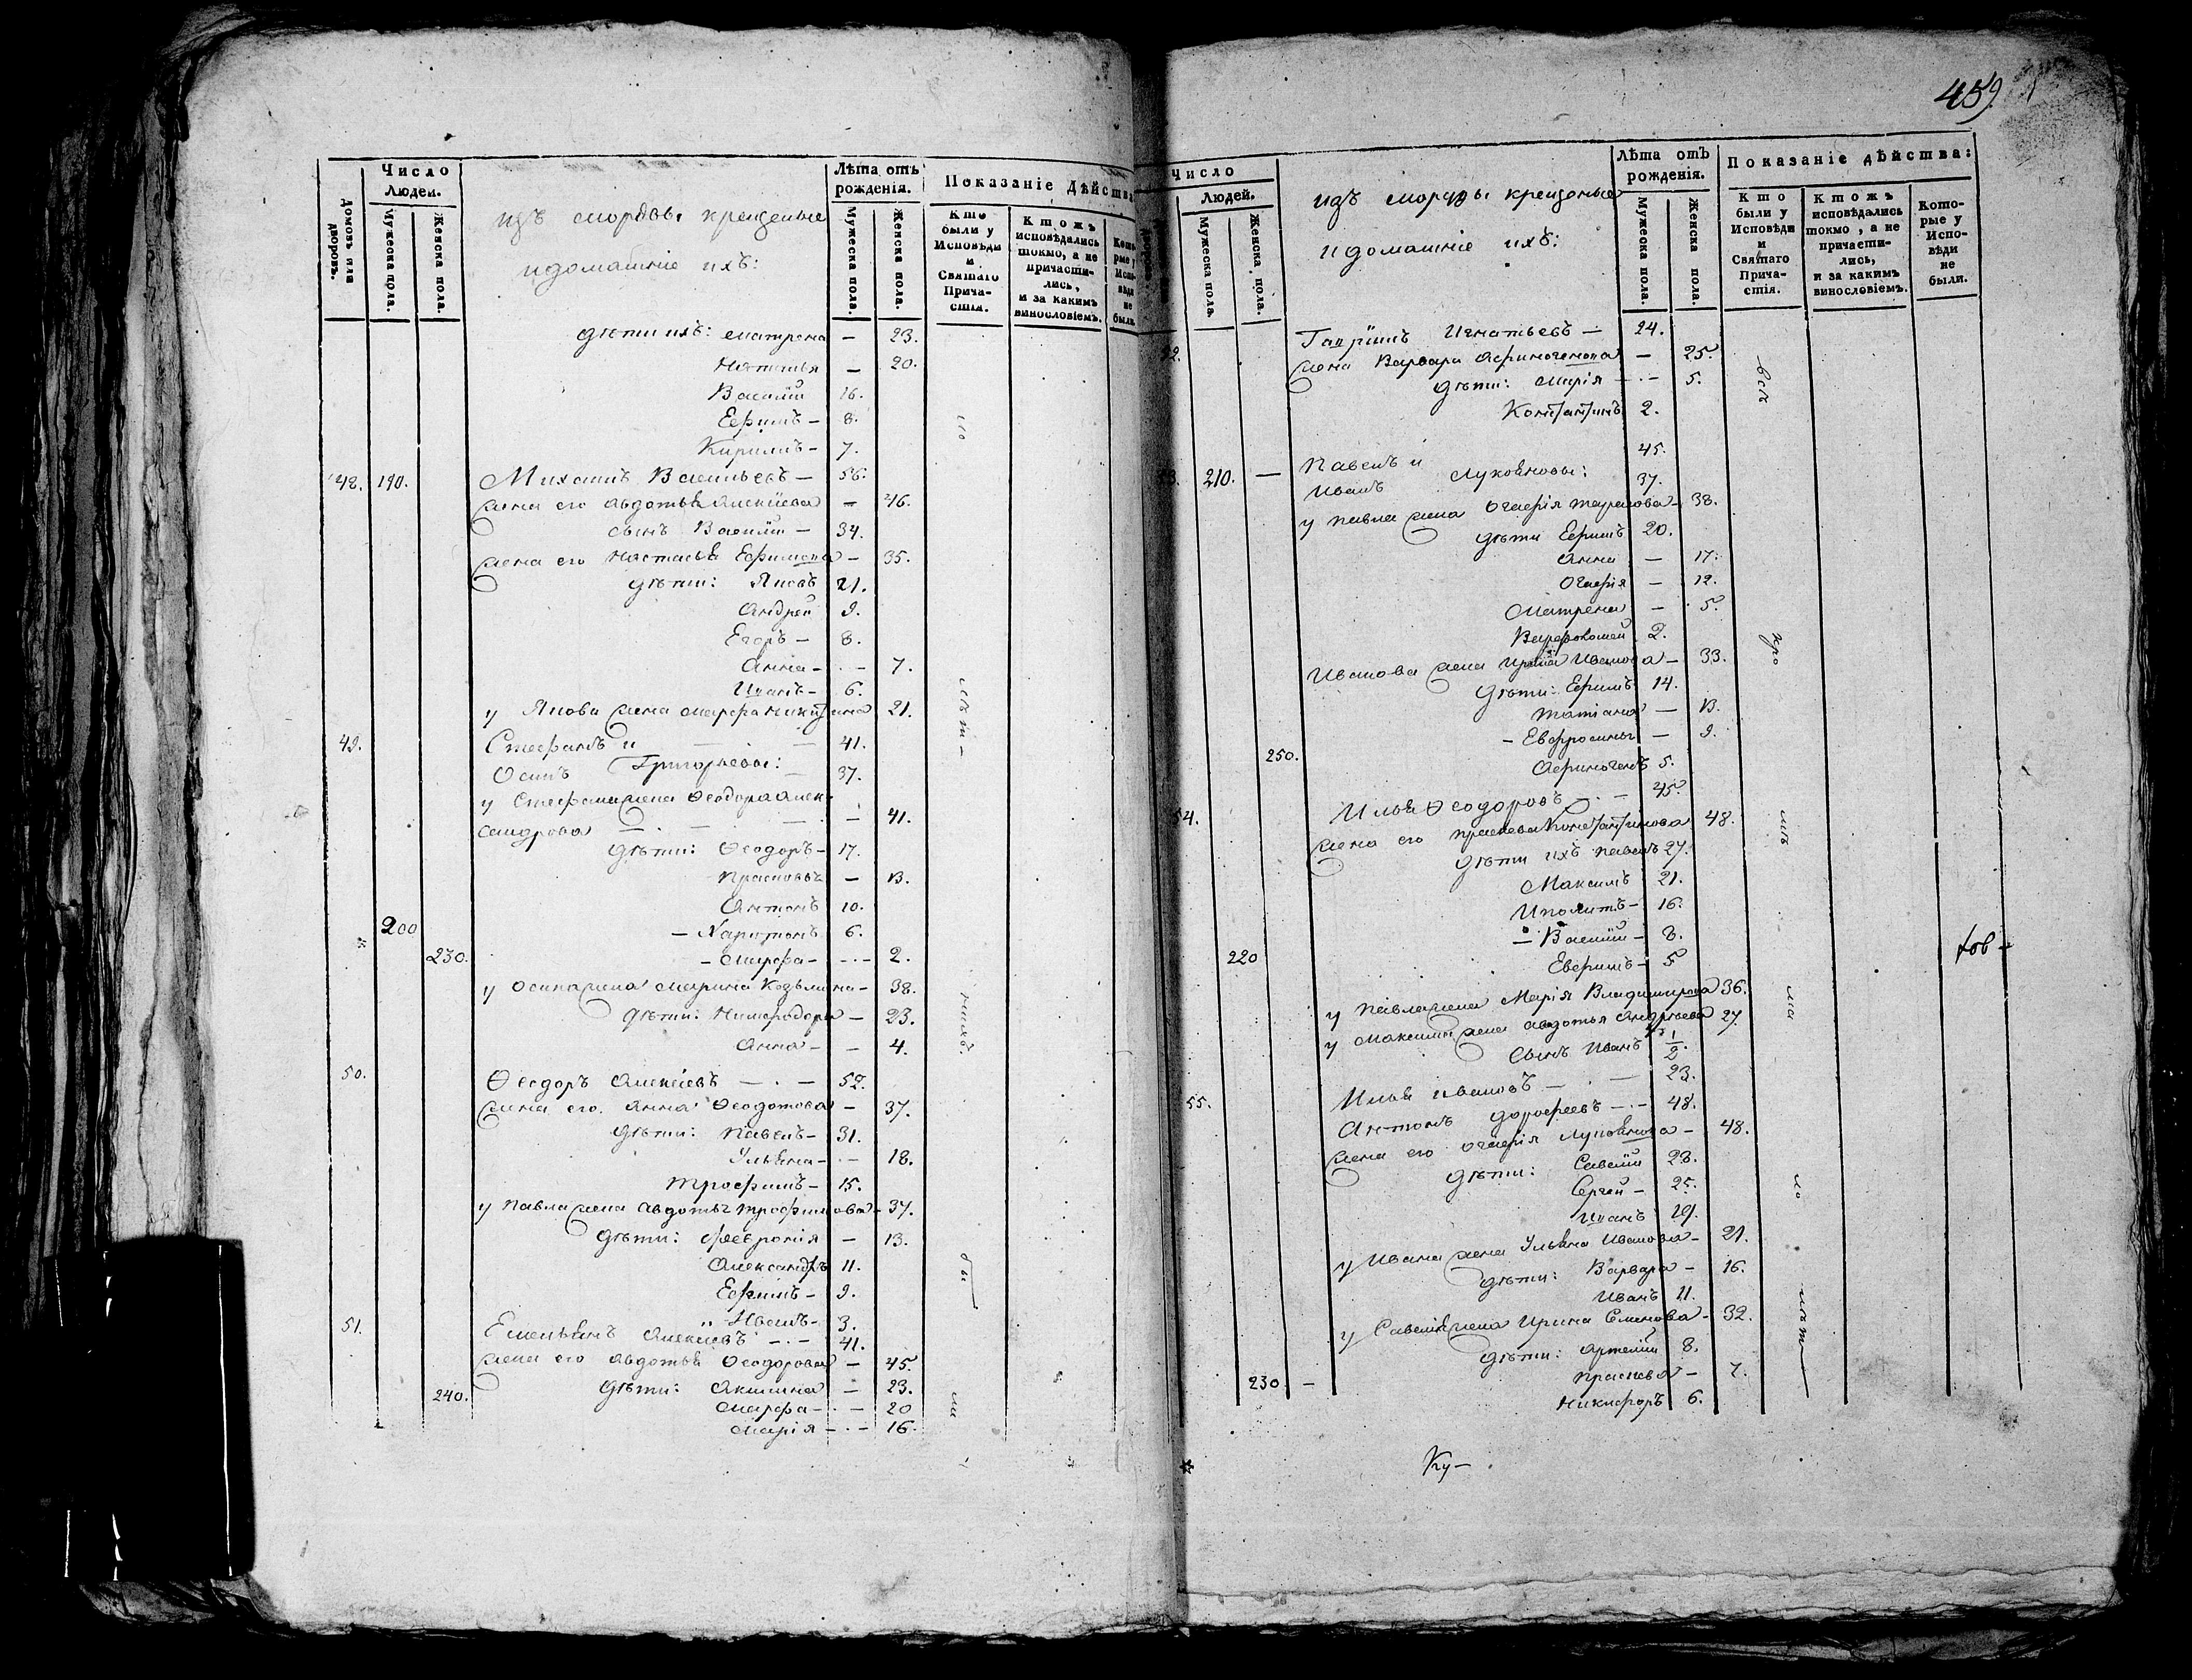 Число
Людей.
Домовъ или дворовъ.
Мужеска пола.
Женска пола.
изъ мордвы крещеные
и домашніе ихъ:
Лѣта отъ рожденія.
Мужеска пола.
Женска пола.
Показаніе Дѣйства
Кто были у Исповѣди и Святаго Причастія.
Ктожъ исповѣдались токмо, а не причастились, и за какимъ винословіемъ.
дѣти ихъ: Матрена — 23.
Наталья — 20.
Василій 16.
Ефимъ — 8.
Кирилъ — 7.
48. 190. Михаилъ Васильевъ — 56.
жена его Авдотья Алексѣева — 46.
сынъ Василій — 34.
жена его Настасья Ефимова — 35.
дѣти: Яковъ 21.
Андрей 9.
Егоръ — 8.
Анна — 7.
Иванъ — 6.
у Якова жена Марфа Никитина 21.
49. Стефанъ и — 41.
Осипъ Григорьевы: 37.
у Стефана жена Ѳеодора Алек-
сандрова — 41.
дѣти: Ѳеодоръ — 17.
Прасковья — 13.
Антонъ 10.
200 — Харитонъ 6.
230. — Марфа — 2.
у Осипа жена Марина Козьмина — 38.
дѣти: Нимфодора — 23.
Анна — 4.
50. Ѳеодоръ Алексѣевъ — 52.
жена его Анна Ѳеодотова — 37.
дѣти: Павелъ — 31.
Ульяна — 18.
Трофимъ — 15.
у Павла жена Авдотья Трофимова — 37.
дѣти: Феврония — 13.
Александръ 11.
Ефимъ — 9.
Иванъ — 3.
51. Емельянъ Алексѣевъ — 41.
жена его Авдотья Ѳеодорова — 45.
240. дѣти: Акилина — 23.
Марфа — 20
Марія — 16.
459
Число
Людей.
Мужеска пола.
Женска пола.
изъ мордвы крещеные
и домашніе ихъ:
Лѣта отъ рожденія.
Мужеска пола.
Женска пола.
Показаніе дѣйства:
Кто были у Исповѣди и Святаго Причастія.
Ктожъ исповѣдались токмо, а не причастились, и за какимъ винословіемъ.
Которые у Исповѣди не были.
52. Гавріилъ Игнатьевъ — 24.
жена Варвара Афиногенова — 25.
дѣти: Марія — 5.
Константинъ 2.
53. 210. — Павелъ и 45.
Иванъ Лукояновы: 37.
у Павла жена Гликерія 38.
дѣти Ефимъ 20.
Анна — 17.
Гликерія — 12.
Матрена — 5.
Варфоломей 2.
Иванова жена Ирина Иванова — 33.
дѣти: Ефимъ 14.
Татіана — 13.
250. — Евфросинья — 9.
Афиногенъ 5.
54. Илья Ѳеодоровъ — 45.
жена его Прасковья Константинова 48.
дѣти ихъ Павелъ 27.
Максимъ 21.
Иполитъ — 16.
— Василій — 8.
220 Евфимъ — 5
у Павла жена Марія Владимирова 36.
у Максима жена Авдотья Андрѣева 27.
сынъ Иванъ 1/2.
Илья Ивановъ — 23.
55. Антонъ Дорофеевъ — 48.
жена его Гликерія Лукоянова — 48.
дѣти: Савелій 28.
Сергей — 25.
Иванъ 19.
у Ивана жена Ульяна Иванова — 21.
дѣти: Варвара — 16.
Иванъ 11.
у Савелія жена Ирина Семенова — 32.
дѣти: Артемій 8.
230 — Прасковья — 7.
Никифоръ 6.
Ку —